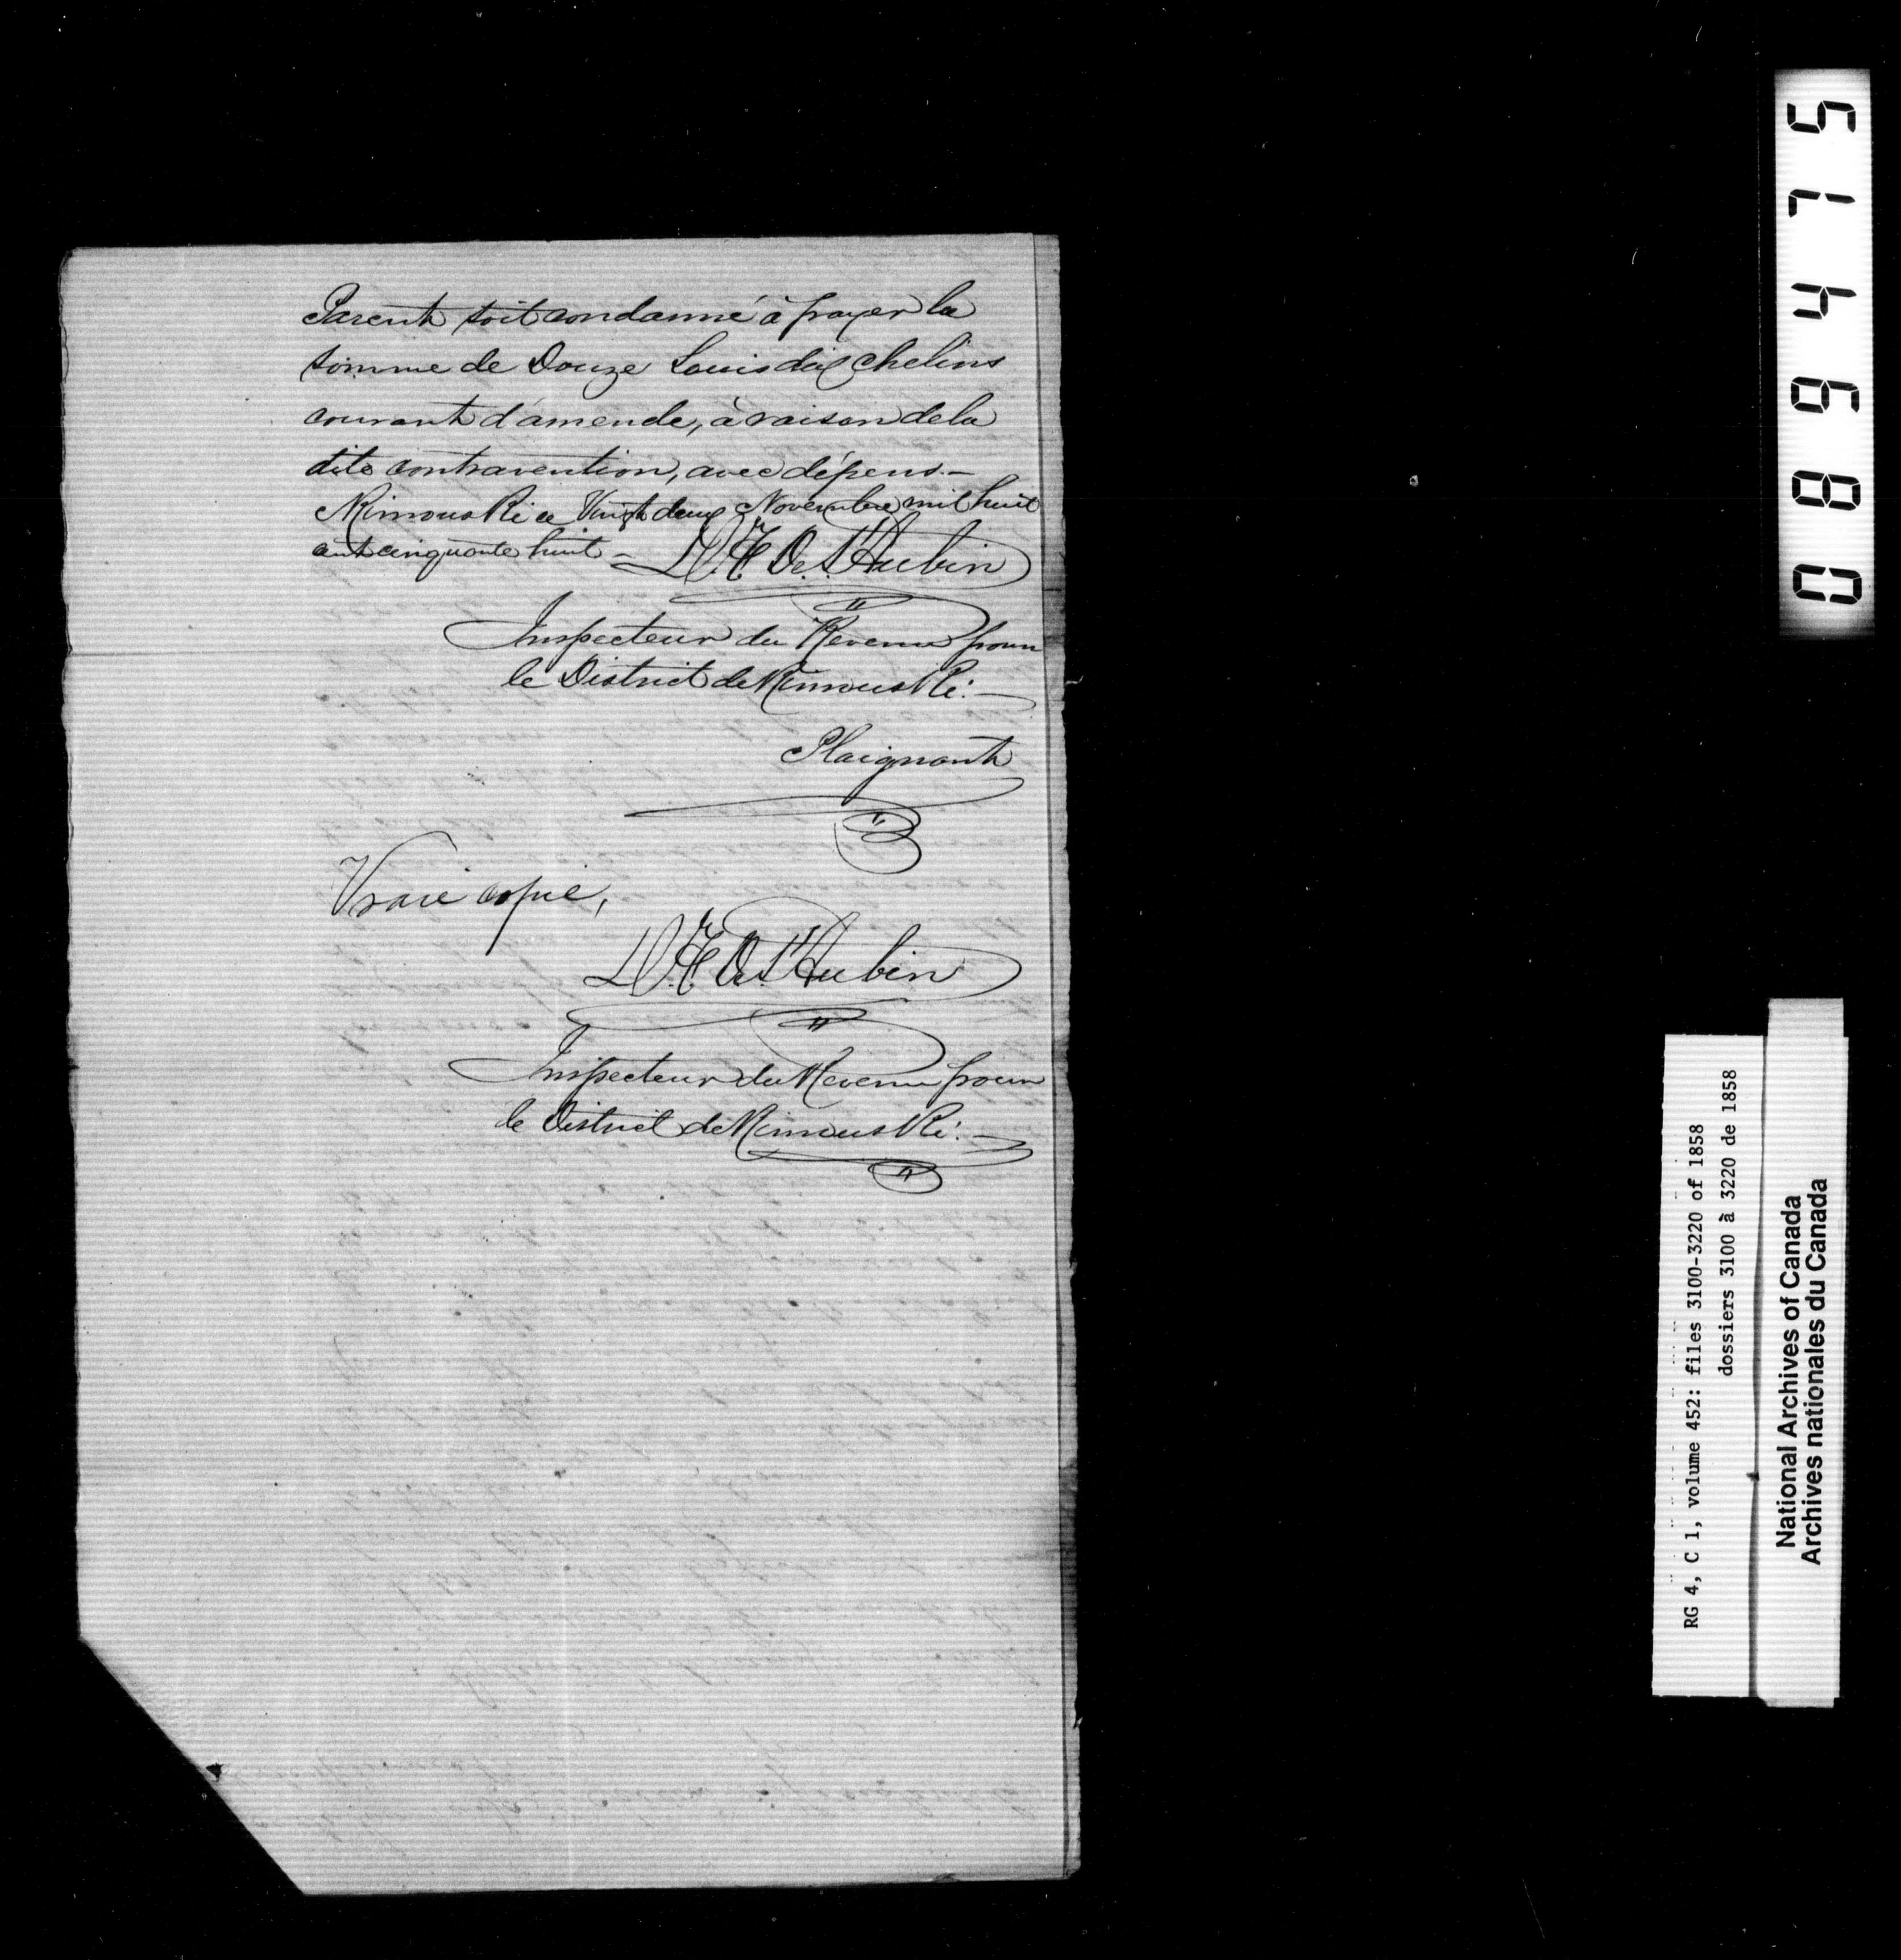 Parent soit condamné à payer la
somme de Douze Louis dix chelins
courant d'amende, à raison de la
dite contravention, avec dépens.—
Rimouski ce Vingt deux Novembre mil huit
cent cinquante huit —
De St Aubin
Inspecteur du Revenu pour
le District de Rimouski. —
Plaignant
Vraie copie,
De St Aubin
Inspecteur du Revenu pour
le District de Rimouski. —
08649 15
RG 4, C 1, volume 452: files 3100-3220 of 1858
dossiers 3100 à 3220 de 1858
National Archives of Canada
Archives nationales du Canada